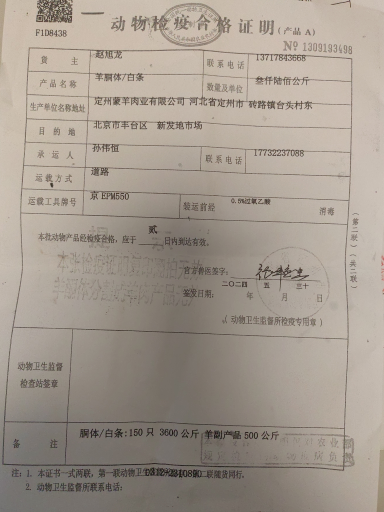 动物检疫合格证明（产品 A）
F1D8438
№ 1309193498
货 主 赵旭龙 联系电话 13717843668
产品名称 羊胴体/白条 数量及单位 叁仟陆佰公斤
生产单位名称地址 定州蒙羊肉业有限公司 河北省定州市 砖路镇台头村东
目 的 地 北京市丰台区 新发地市场
承 运 人 孙伟恒 联系电话 17732237088
运载方式 道路
运载工具牌号 京EPM550 装运前经 0.5%过氧乙酸 消毒
本批动物产品经检疫合格，应于 贰 日内到达有效。
官方兽医签字：
签发日期：二〇二四 年 五 月 三十 日
（动物卫生监督所检疫专用章）
动物卫生监督
检查站签章
备 注 胴体/白条：150 只 3600 公斤 羊副产品 500 公斤
注：1. 本证书一式两联，第一联动物卫生监督所留存，第二联随货同行。
2. 动物卫生监督所联系电话：
（第二联）（共二联）